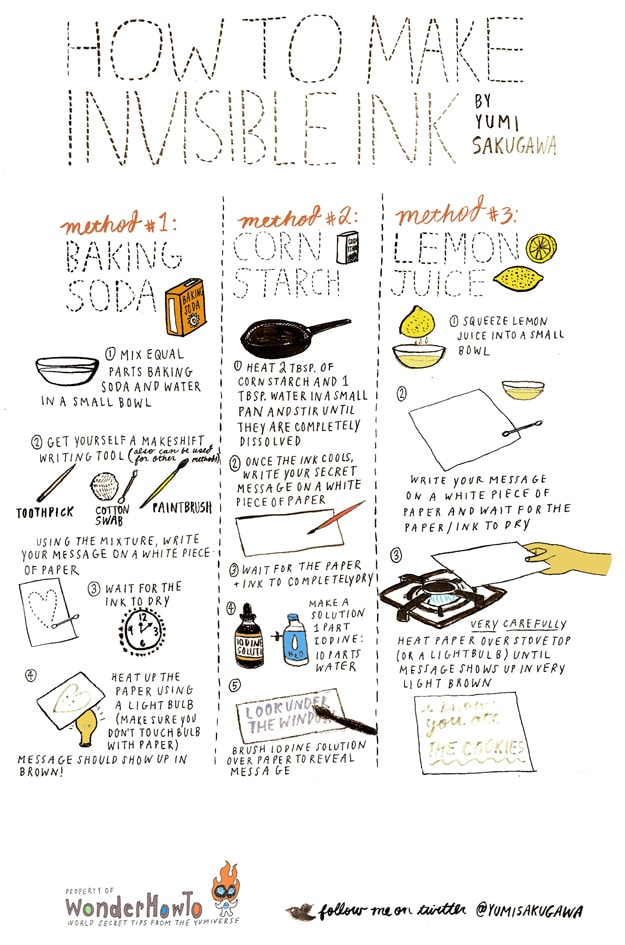 HOW TO MAKE
INVISIBLE INK
BY
YUMI
SAKUGAWA
method #1:
BAKING
SODA
BAKING
SODA
① MIX EQUAL
PARTS BAKING
SODA AND WATER
IN A SMALL BOWL
② GET YOURSELF A MAKESHIFT
WRITING TOOL (also can be used
for other methods)
TOOTHPICK
COTTON
SWAB
PAINTBRUSH
USING THE MIXTURE, WRITE
YOUR MESSAGE ON A WHITE PIECE
OF PAPER
③ WAIT FOR THE
INK TO DRY
④ HEAT UP THE
PAPER USING
A LIGHT BULB
(MAKE SURE YOU
DON'T TOUCH BULB
WITH PAPER)
MESSAGE SHOULD SHOW UP IN
BROWN!
method #2:
CORN
STARCH
CORN
STARCH
① HEAT 2 TBSP. OF
CORNSTARCH AND 1
TBSP. WATER IN A SMALL
PAN AND STIR UNTIL
THEY ARE COMPLETELY
DISSOLVED
② ONCE THE INK COOLS,
WRITE YOUR SECRET
MESSAGE ON A WHITE
PIECE OF PAPER
③ WAIT FOR THE PAPER
+ INK TO COMPLETELY DRY
④ MAKE A
SOLUTION
1 PART
IODINE:
10 PARTS
WATER
IODINE
SOLUTI
H2O
⑤
LOOK UNDER
THE WINDOW
BRUSH IODINE SOLUTION
OVER PAPER TO REVEAL
MESSAGE
method #3:
LEMON
JUICE
① SQUEEZE LEMON
JUICE INTO A SMALL
BOWL
②
WRITE YOUR MESSAGE
ON A WHITE PIECE OF
PAPER AND WAIT FOR THE
PAPER/INK TO DRY
③
VERY CAREFULLY
HEAT PAPER OVER STOVE TOP
(OR A LIGHTBULB) UNTIL
MESSAGE SHOWS UP IN VERY
LIGHT BROWN
i know
you ate
THE COOKIES
PROPERTY OF
WonderHowTo
WORLD SECRET TIPS FROM THE YUMIVERSE
follow me on twitter @YUMISAKUGAWA